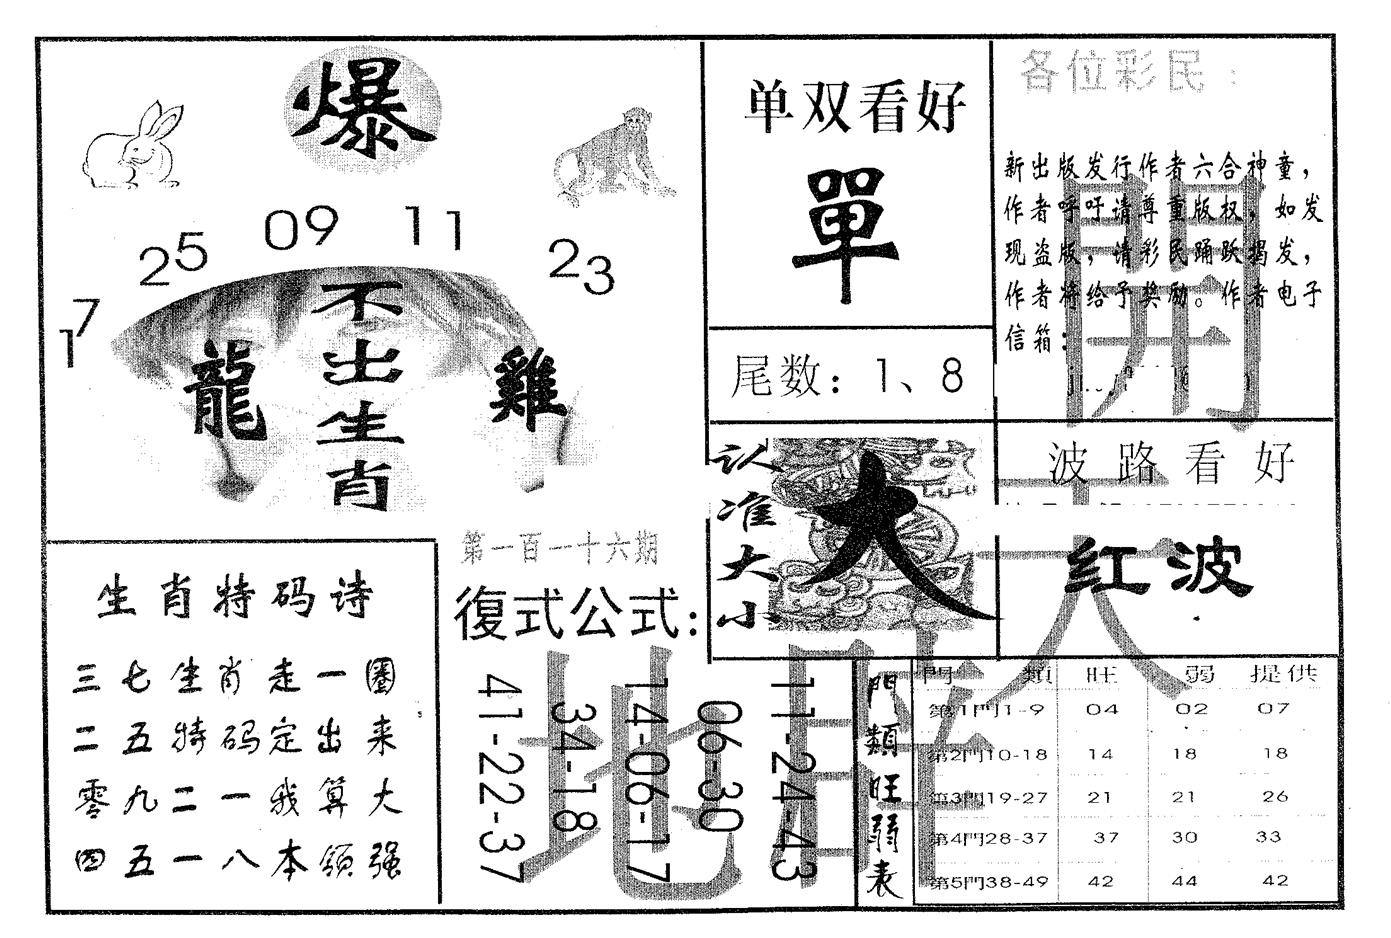 爆
17
25
09
11
23
不出生肖
龍
雞
单双看好
單
尾数：1、8
各位彩民：
新出版发行作者六合神童，
作者呼吁请尊重版权，如发
现盗版，请彩民踊跃揭发，
作者将给予奖励。作者电子
信箱：
认准大小
大
波路看好
红波
生肖特码诗
三七生肖走一圈
二五特码定出来
零九二一我算大
四五一八本领强
第一百一十六期
復式公式:
41-22-37
34-18
14-06-17
06-30
11-24-43
門類旺弱表
門 類 旺 弱 提供
第1門1-9 04 02 07
第2門10-18 14 18 18
第3門19-27 21 21 26
第4門28-37 37 30 33
第5門38-49 42 44 42